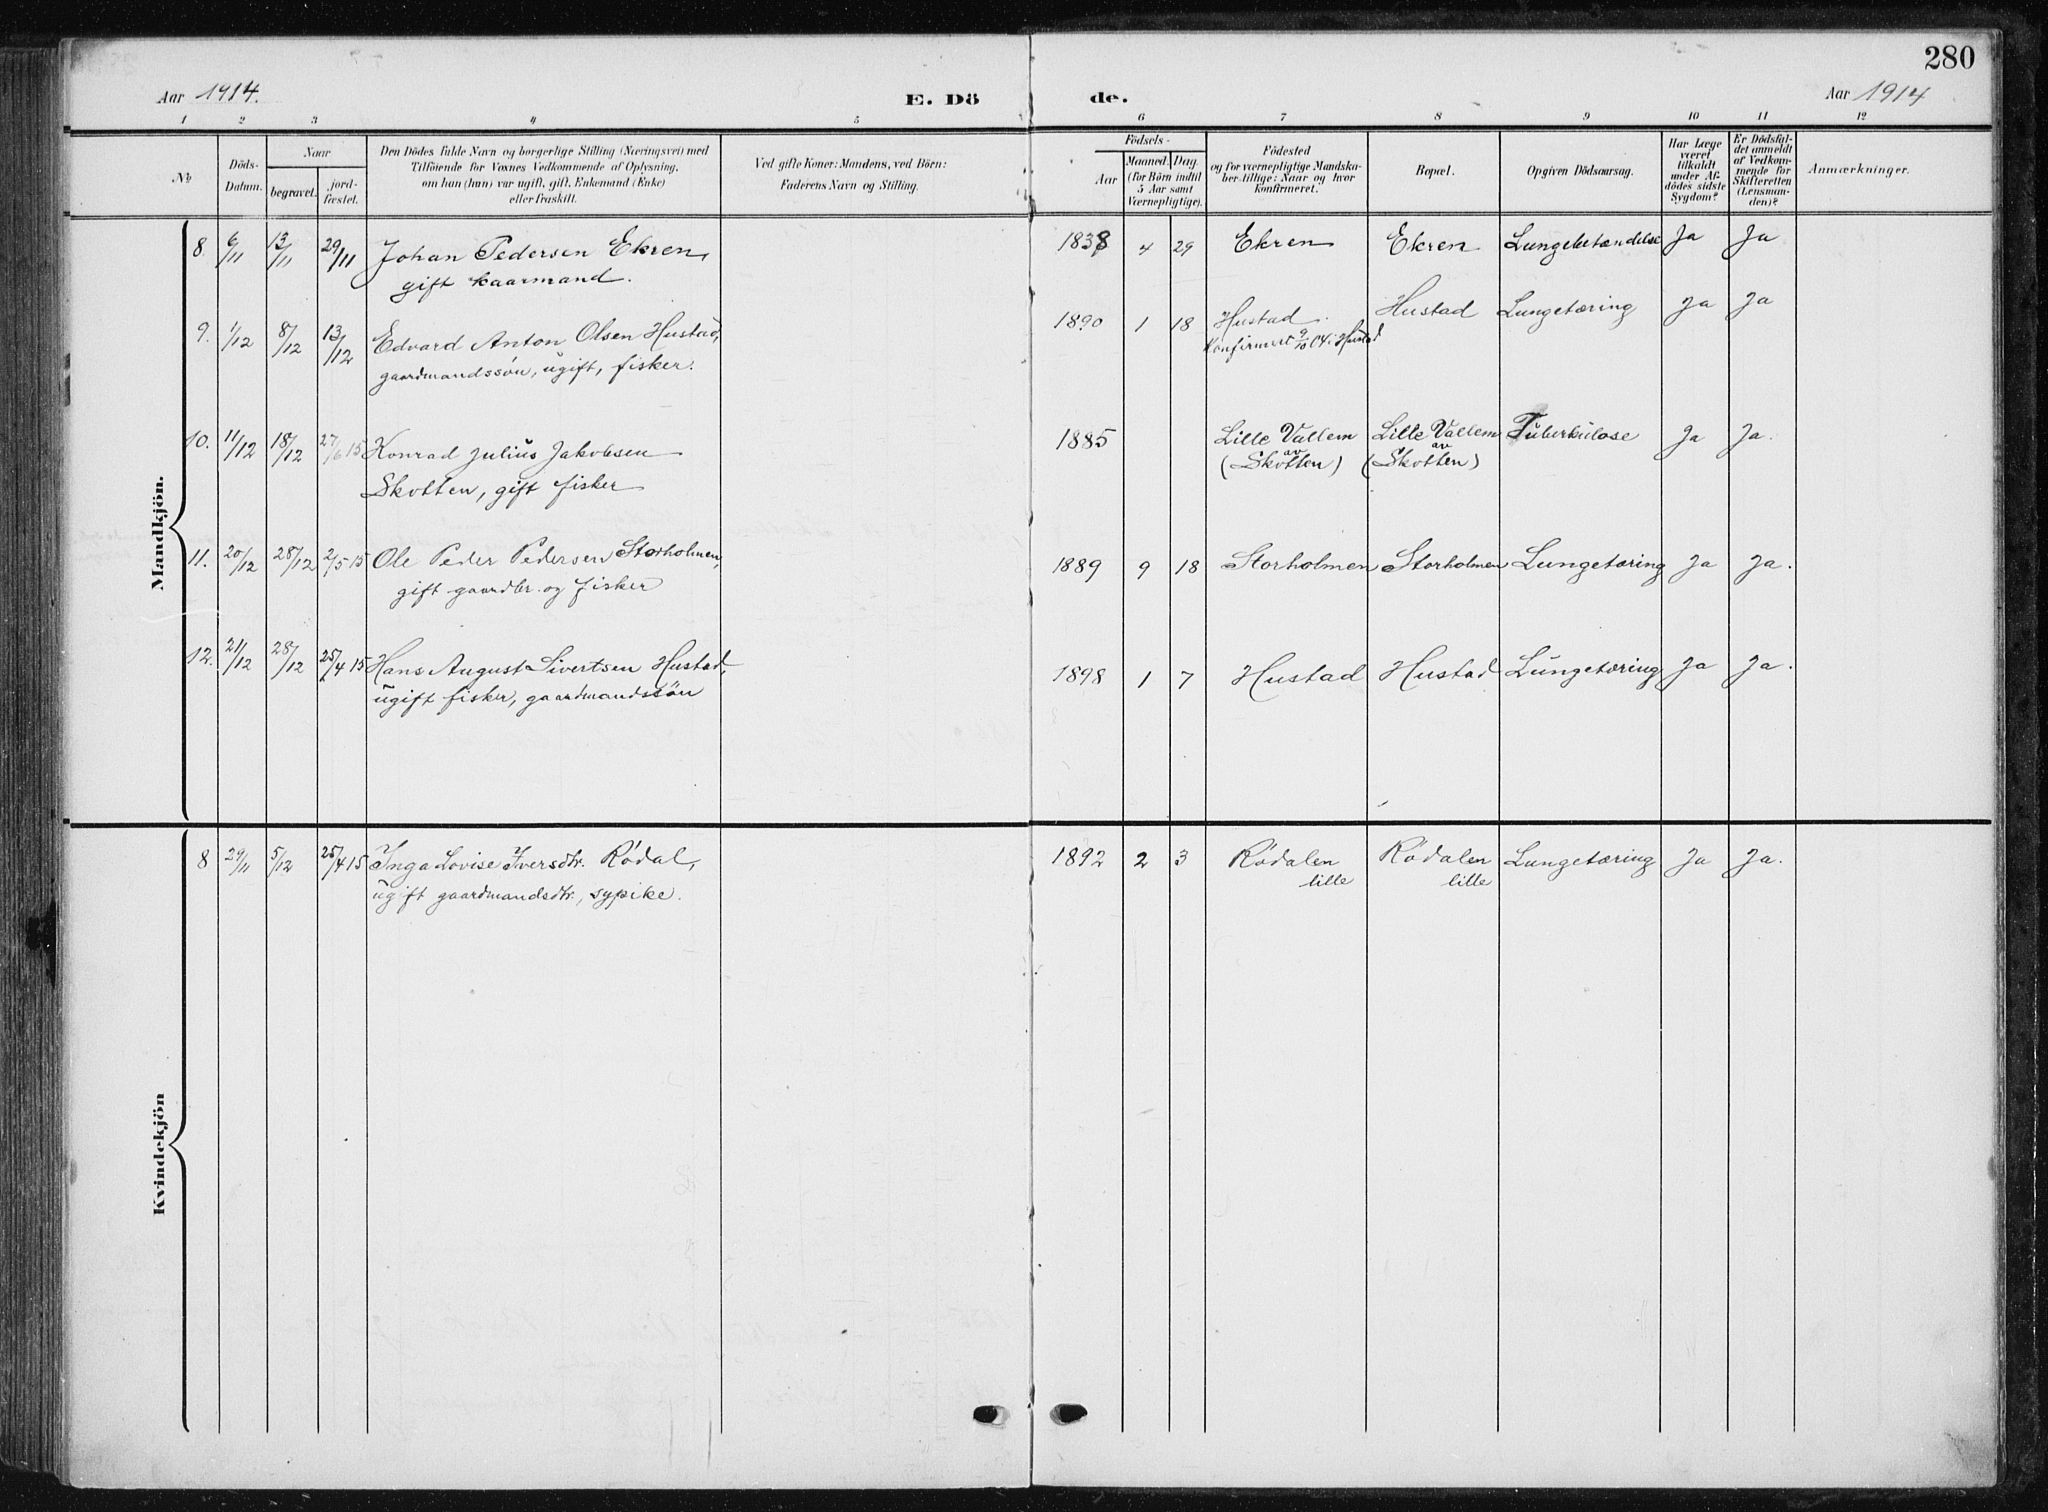 280
Aar 1914. E. Dö de. Aar 1914
1 2 3 4 5 6 7 8 9 10 11 12
No
Döds-
Datum.
Naar
begravet.
jord-
fæstet.
Den Dödes fulde Navn og borgerlige Stilling (Næringsvei) med
Tilföiende for Voxnes Vedkommende af Oplysning,
om han (hun) var ugift, gift, Enkemand (Enke)
eller fraskilt.
Ved gifte Koner: Mandens, ved Börn:
Faderens Navn og Stilling.
Födsels-
Aar
Maaned. Dag.
(for Börn indtil
5 Aar samt
Værnepligtige).
Födested
og for værnepligtige Mandska-
ber tillige: Naar og hvor
konfirmeret.
Bopæl.
Opgiven Dödsaarsag.
Har Læge
været
tilkaldt
under Af-
dödes sidste
Sygdom?
Er Dödsfal-
det anmeldt
af Vedkom-
mende for
Skifteretten
(Lensman-
den)?
Anmærkninger.
Mandkjön.
8. 6/11 13/11 29/11 Johan Pedersen Ekren, 1838 4 29 Ekren Ekren Lungebetændelse Ja Ja
gift kaarmand.
9. 1/12 8/12 13/12 Edvard Anton Olsen Hustad, 1890 1 18 Hustad. Hustad Lungetæring Ja Ja
Konfirmert 9/10 04 i Hustad
gaardmandssön, ugift, fisker.
10. 11/12 18/12 27/6 15 Konrad Julius Jakobsen 1885 Lille Vallem Lille Vallem Tuberkulose Ja Ja.
av av
(Skotten) (Skotten)
Skotten, gift fisker
11. 20/12 28/12 2/5 15 Ole Peder Pedersen Storholmen, 1889 9 18 Storholmen Storholmen Lungetæring Ja Ja.
gift gaardbr. og fisker
12. 21/12 28/12 25/4 15 Hans August Sivertsen Hustad, 1898 1 7 Hustad Hustad Lungetæring Ja Ja.
ugift fisker, gaardmandssön
Kvindekjön
8 29/11 5/12 25/4 15 Inga Lovise Iversdtr. Rödal, 1892 2 3 Rödalen Rödalen Lungetæring Ja Ja.
lille lille
ugift gaardmandsdtr., sypike.